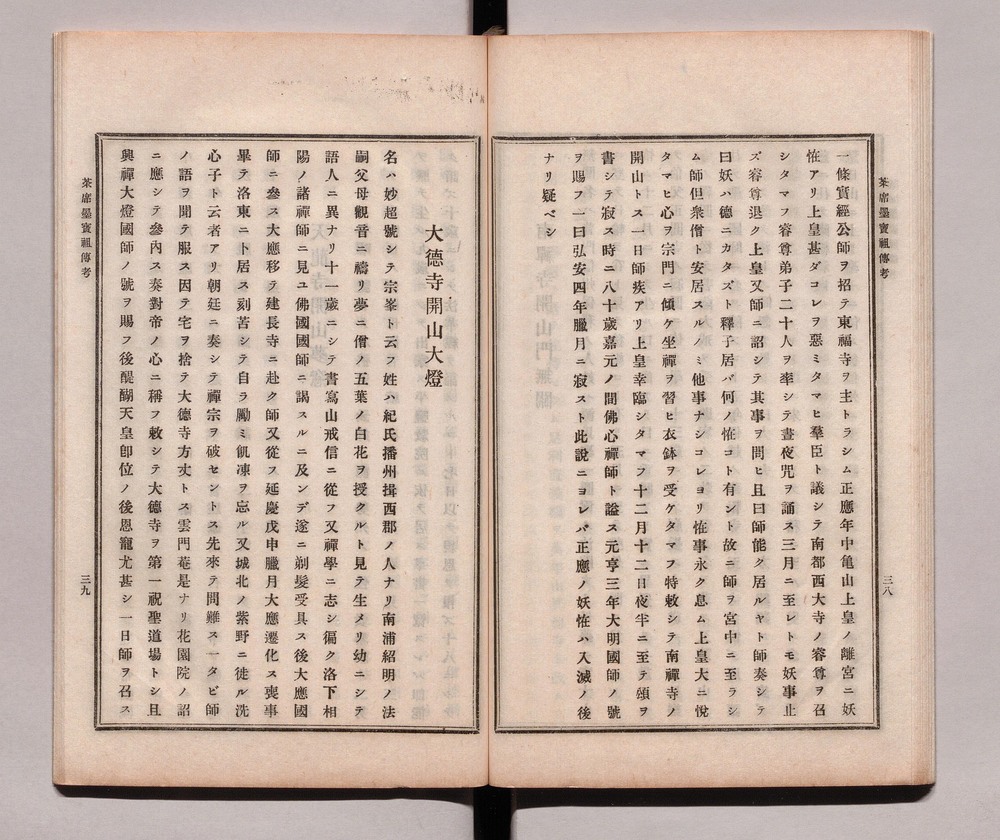 茶席墨寶祖傳考
三八
一條實經公師ヲ招テ東福寺ヲ主トラシム正應年中亀山上皇ノ離宮ニ妖
恠アリ上皇甚ダコレヲ惡ミタマヒ羣臣ト議シテ南都西大寺ノ睿尊ヲ召
シタマフ睿尊弟子二十人ヲ率シテ晝夜咒ヲ誦ス三月ニ至レトモ妖事止
ズ睿尊退ク上皇又師ニ詔シテ其事ヲ問ヒ且曰師能ク居ルヤト師奏シテ
曰妖ハ德ニカタズト釋子居バ何ノ恠コト有ント故ニ師ヲ宮中ニ至ラシ
ム師但衆僧ト安居スルノミ他事ナシコレヨリ恠事永ク息ム上皇大ニ悅
タマヒ心ヲ宗門ニ傾ケ坐禪ヲ習ヒ衣鉢ヲ受ケタマフ特敕シテ南禪寺ノ
開山トス一日師疾アリ上皇幸臨シタマフ十二月十二日夜半ニ至テ頌ヲ
書シテ寂ス時ニ八十歳嘉元ノ間佛心禪師ト謚ス元亨三年大明國師ノ號
ヲ賜フ一曰弘安四年臘月ニ寂スト此說ニヨレバ正應ノ妖恠ハ入滅ノ後
ナリ疑ベシ
大德寺開山大燈
名ハ妙超號シテ宗峯ト云フ姓ハ紀氏播州揖西郡ノ人ナリ南浦紹明ノ法
嗣父母觀音ニ禱リ夢ニ僧ノ五葉ノ白花ヲ授クルト見テ生メリ幼ニシテ
語人ニ異ナリ十一歳ニシテ書寫山戒信ニ從フ又禪學ニ志シ徧ク洛下相
陽ノ諸禪師ニ見ユ佛國國師ニ謁スルニ及ンデ遂ニ剃髮受具ス後大應國
師ニ參ス大應移テ建長寺ニ赴ク師又從ス延慶戊申臘月大應遷化ス喪事
畢テ洛東ニト居ス刻苦シテ自ラ勵ミ飢凍ヲ忘ル又城北ノ紫野ニ徙ル洗
心子ト云者アリ朝廷ニ奏シテ禪宗ヲ破セントス先來テ問難ス一タビ師
ノ語ヲ聞テ服ス因テ宅ヲ捨テ大德寺方丈トス雲門菴是ナリ花園院ノ詔
ニ應シテ參內ス奏對帝ノ心ニ稱フ敕シテ大德寺ヲ第一祝聖道場トシ且
興禪大燈國師ノ號ヲ賜フ後醍醐天皇卽位ノ後恩寵尤甚シ一日師ヲ召ス
茶席墨寶祖傳考
三九